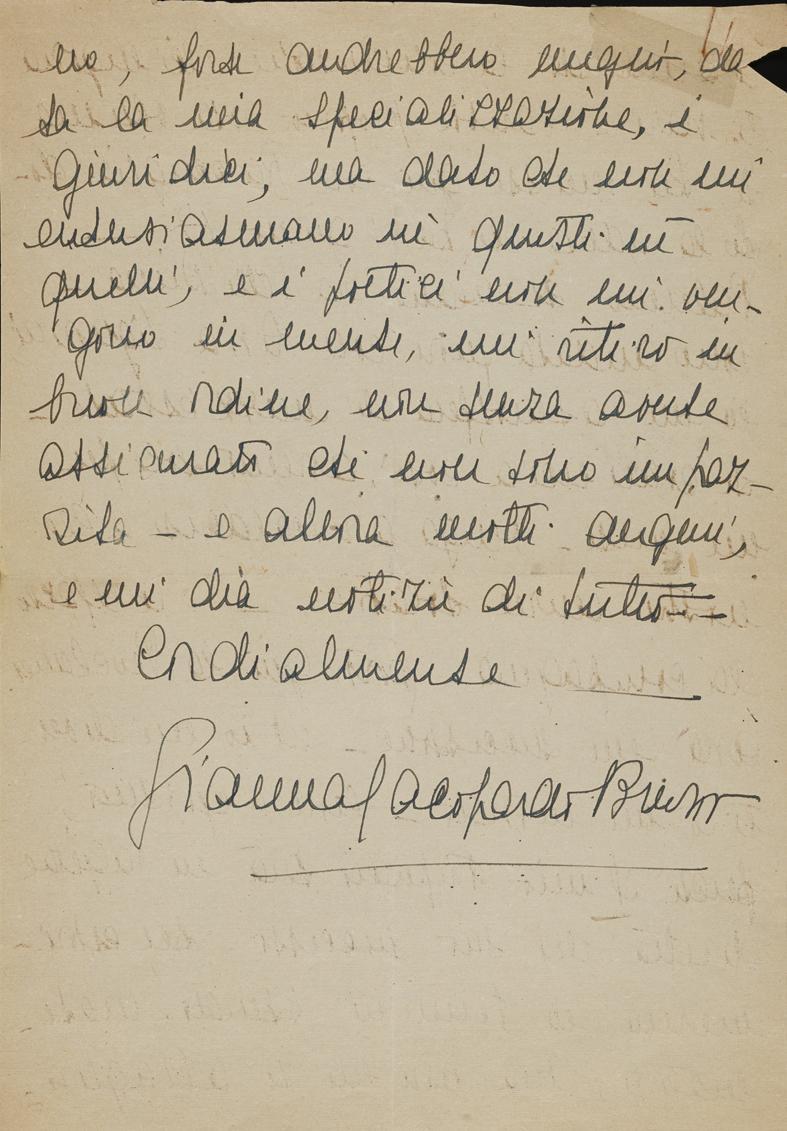 no, forse andrebbero meglio, da
ta la mia specializzazione, i
giuridici, ma dato che non mi
entusiasmano nè questi nè
quelli, e i poetici non mi ven-
gono in mente, mi ritiro in
buon ordine, non senza averle
assicurato che non sono impaz-
zita - e allora molti auguri,
e mi dia notizie di tutto -
Cordialmente
Gianna Jacopardo